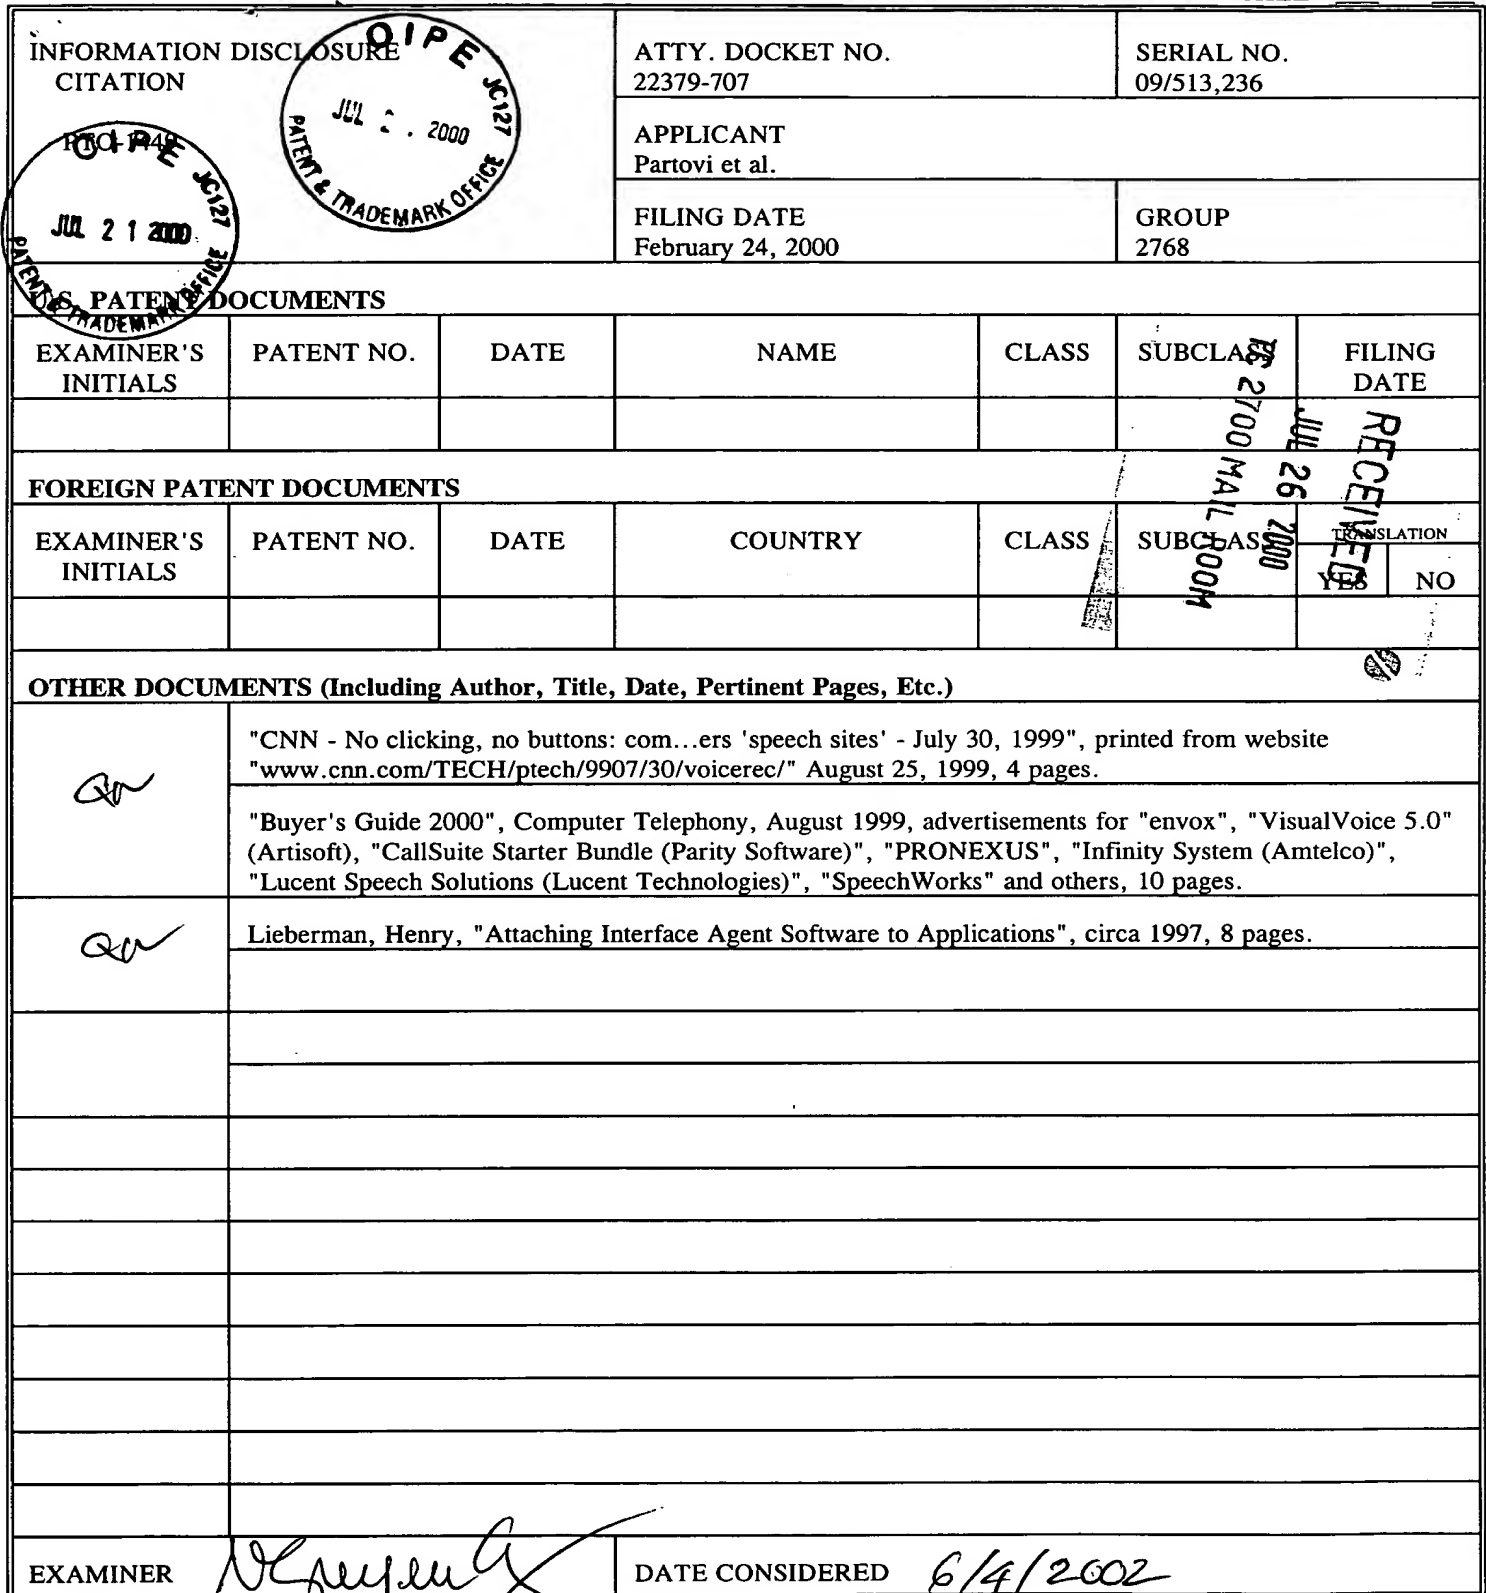 INFORMATION DISCLOSURE
CITATION
OIPE JC127
JUL 2 . 2000
PATENT & TRADEMARK OFFICE
OIPE JC127
JUL 2 1 2000
PATENT & TRADEMARK OFFICE
ATTY. DOCKET NO.
22379-707
SERIAL NO.
09/513,236
APPLICANT
Partovi et al.
FILING DATE
February 24, 2000
GROUP
2768
U.S. PATENT DOCUMENTS
EXAMINER'S
INITIALS
PATENT NO.
DATE
NAME
CLASS
SUBCLASS
FILING
DATE
RECEIVED
JUL 26 2000
TC 2700 MAIL ROOM
FOREIGN PATENT DOCUMENTS
EXAMINER'S
INITIALS
PATENT NO.
DATE
COUNTRY
CLASS
SUBCLASS
TRANSLATION
YES
NO
OTHER DOCUMENTS (Including Author, Title, Date, Pertinent Pages, Etc.)
"CNN - No clicking, no buttons: com...ers 'speech sites' - July 30, 1999", printed from website
"www.cnn.com/TECH/ptech/9907/30/voicerec/" August 25, 1999, 4 pages.
"Buyer's Guide 2000", Computer Telephony, August 1999, advertisements for "envox", "VisualVoice 5.0"
(Artisoft), "CallSuite Starter Bundle (Parity Software)", "PRONEXUS", "Infinity System (Amtelco)",
"Lucent Speech Solutions (Lucent Technologies)", "SpeechWorks" and others, 10 pages.
Lieberman, Henry, "Attaching Interface Agent Software to Applications", circa 1997, 8 pages.
EXAMINER
DATE CONSIDERED 6/4/2002